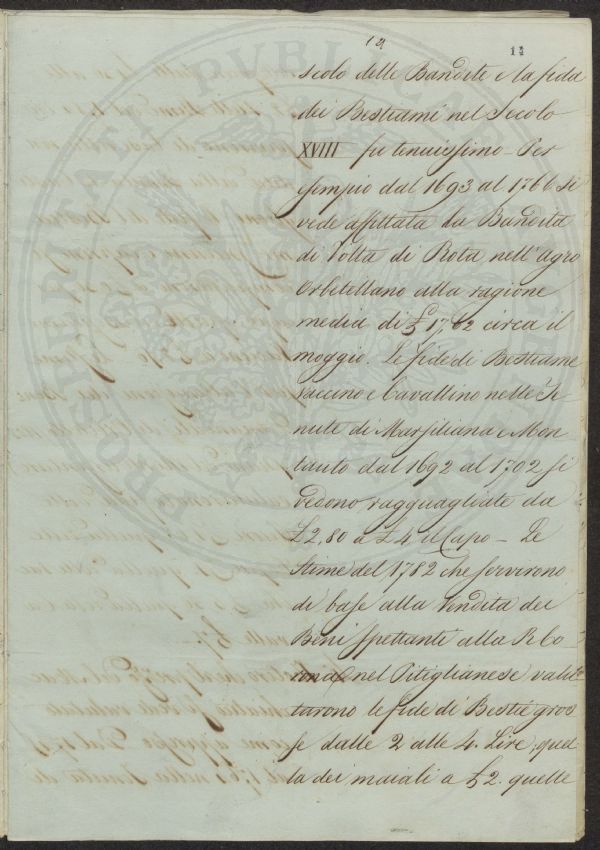 12
14
scolo delle Bandite e la fida
dei Bestiami nel Secolo
XVIII fu tenuissimo – Per
esempio dal 1693 al 1766 si
vede affittata la Bandita
di Volta di Rota nell'agro
Orbetellano alla ragione
media di £ 17,62 circa il
moggio. Le fide di Bestiame
vaccino e Cavallino nelle Te
nute di Marsiliana e Mon
tauto dal 1692 al 1702 si
vedono ragguagliate da
£ 2,80 a £ 4 il Capo – Le
Stime del 1782 che servirono
di base alla Vendita dei
Beni spettanti alla R. Co
rona nel Pitiglianese valu
tarono le fide di Bestie gros
se dalle 2 alle 4. Lire, quel
la dei maiali a £ 2. quelle
PROSPERITATI PVBLICAE